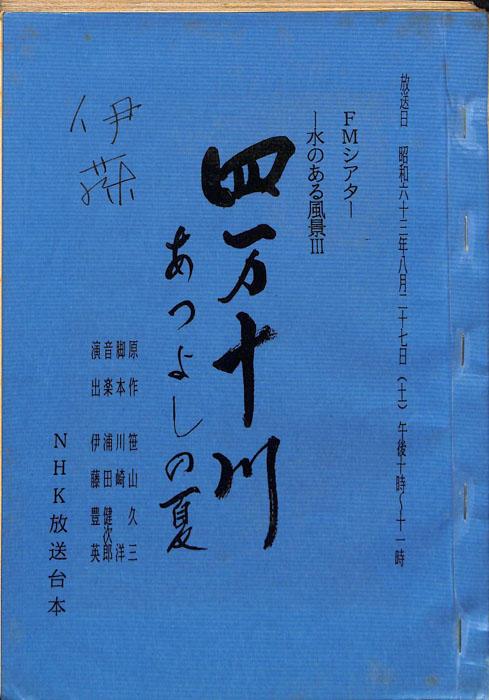 放送日 昭和六十三年八月二十七日(土)午後十時~十一時
FMシアター
―水のある風景Ⅲ
四万十川
あつよしの夏
原作 笹山久三
脚本 川崎洋
音楽 浦田健次郎
演出 伊藤豊英
NHK放送台本
伊藤